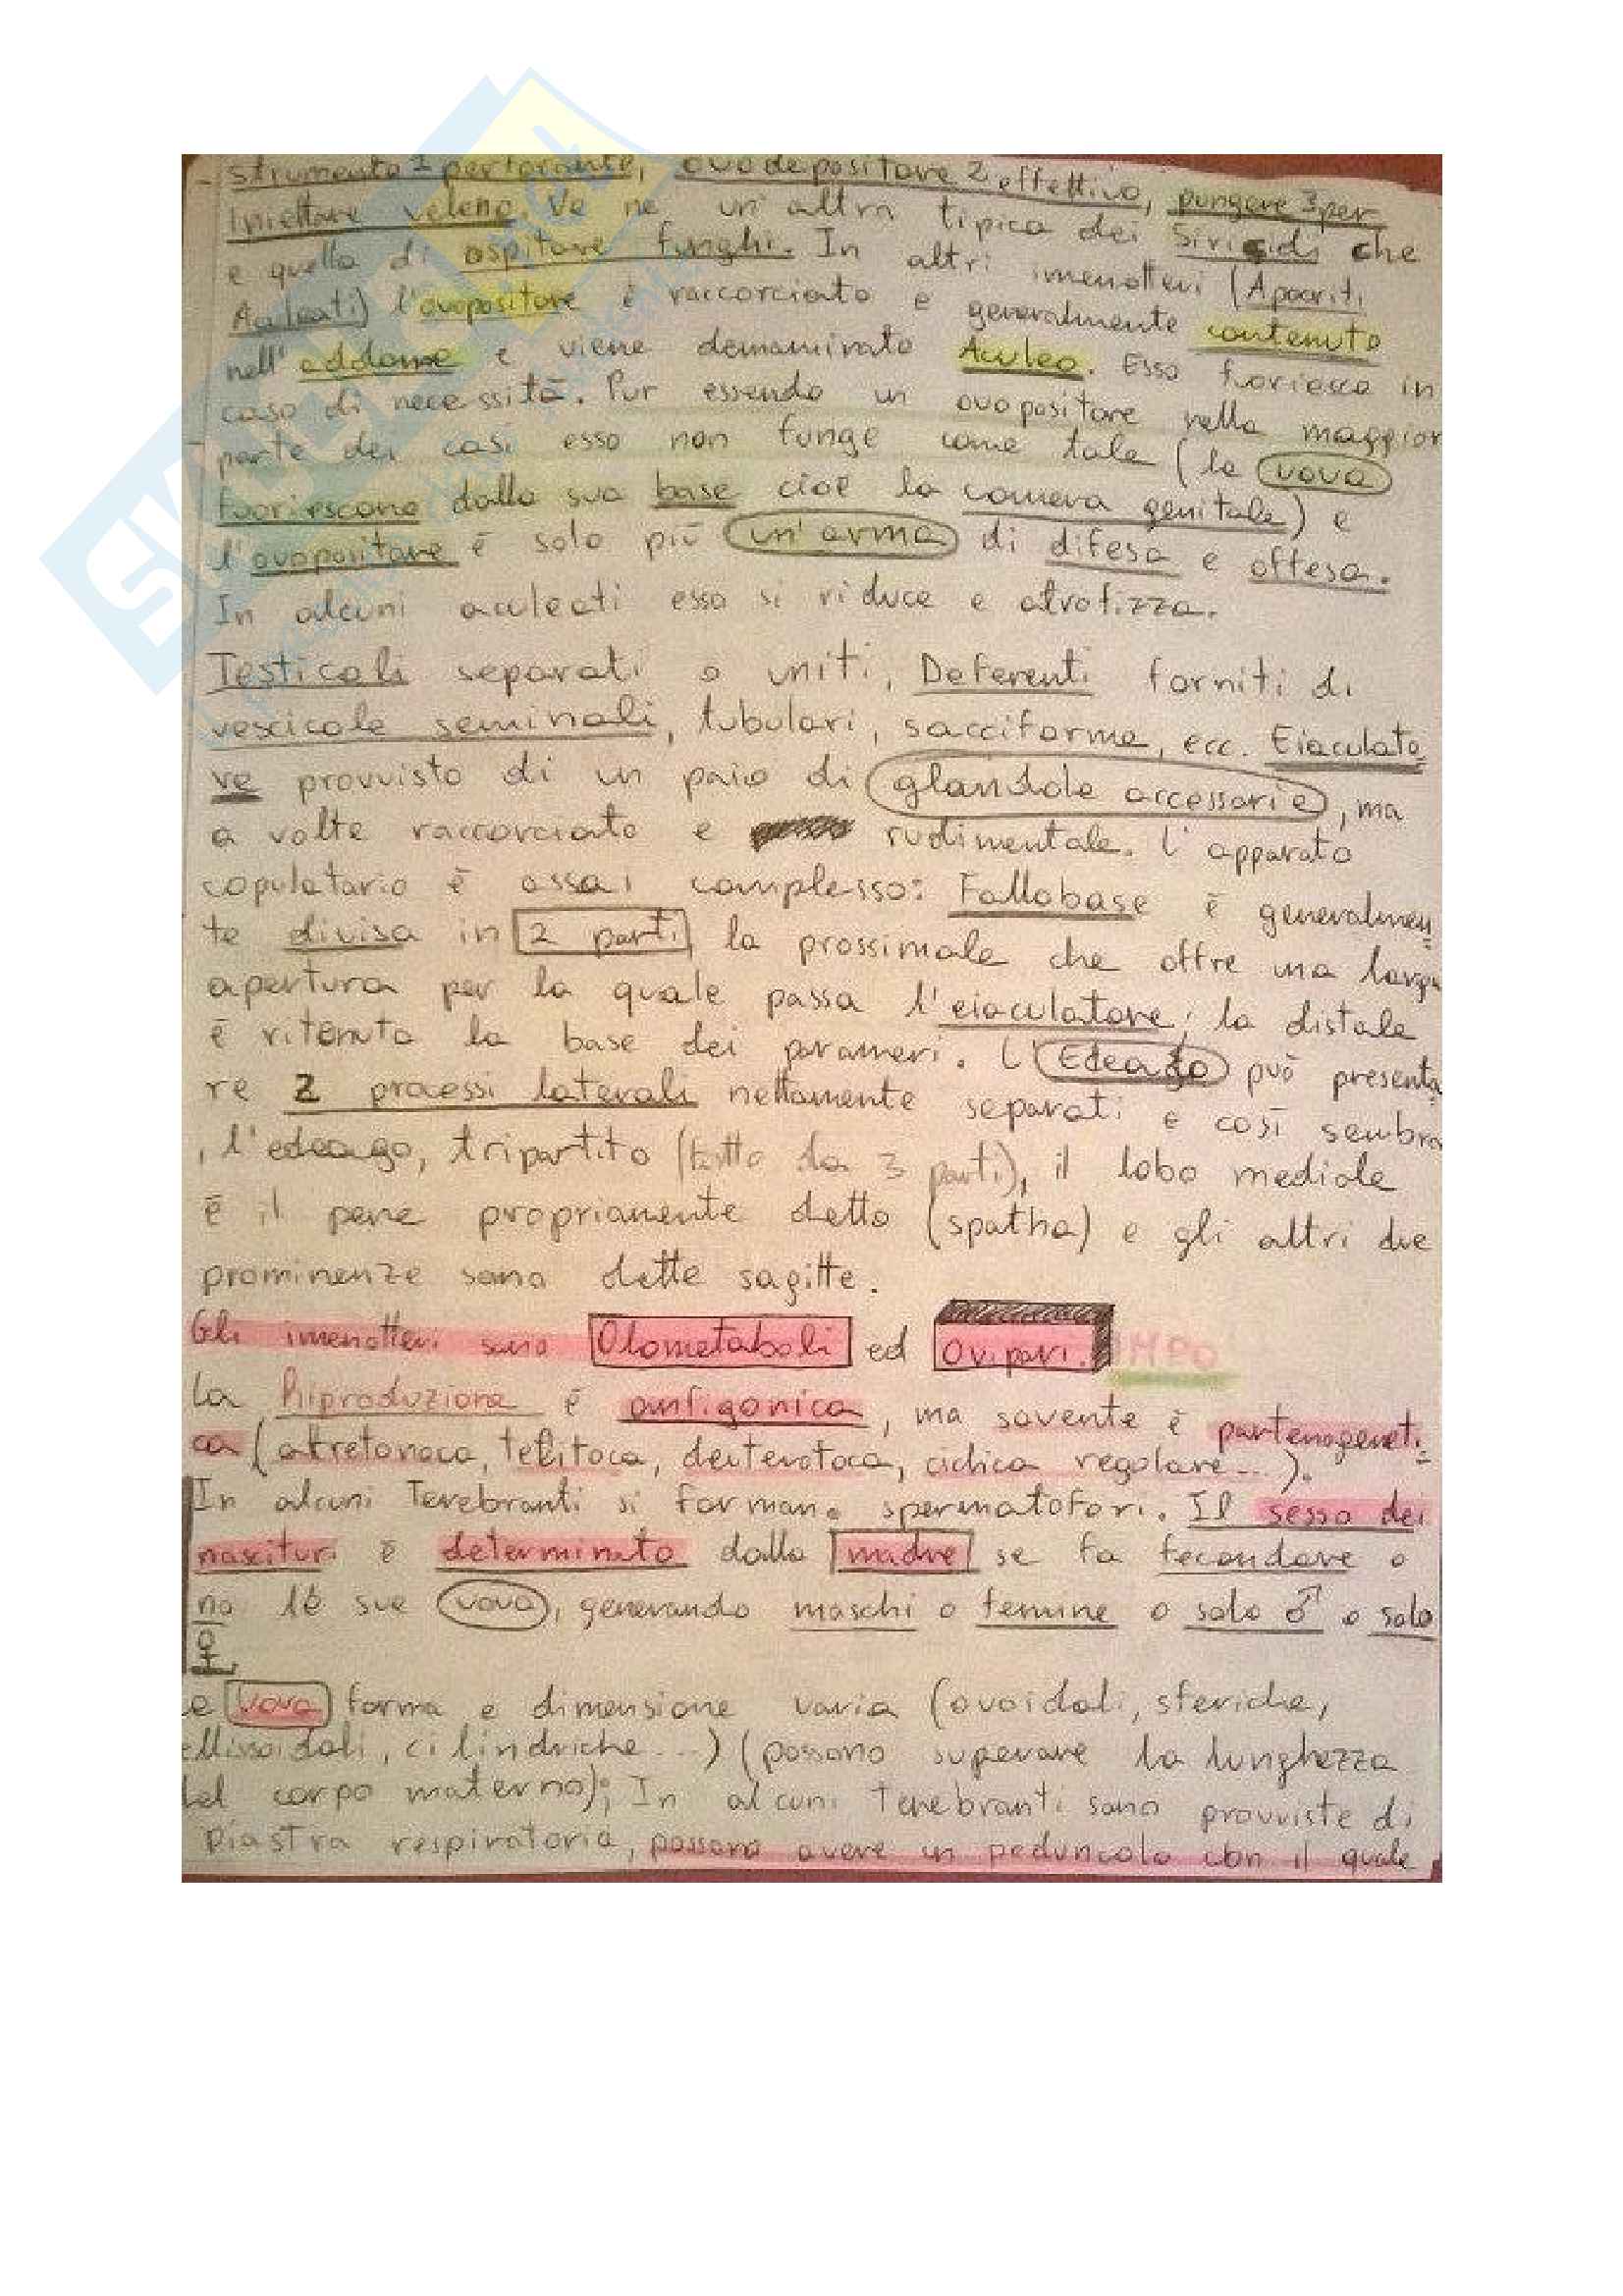 - strumento 1 perforante, ovodepositore 2 effettivo, pungere 3 per
iniettare veleno. Ve ne un'altra tipica dei Siricidi che
e quella di ospitare funghi. In altri imenotteri (Apocriti
Aculeati) l'ovopositore è raccorciato e generalmente contenuto
nell'addome e viene denominato Aculeo. Esso fuoriesce in
caso di necessità. Pur essendo un ovopositore nella maggior
parte dei casi esso non funge come tale (le uova
fuoriescono dalla sua base cioè la camera genitale) e
l'ovopositore è solo più un'arma di difesa e offesa.
In alcuni aculeati esso si riduce e atrofizza.
Testicoli separati o uniti, Deferenti forniti di
vescicole seminali, tubulari, sacciforme, ecc. Eiaculato
re provvisto di un paio di glandole accessorie, ma
a volte raccorciato e rudimentale. L'apparato
copulatorio è assai complesso: Fallobase è generalmen
te divisa in 2 parti la prossimale che offre una larga
apertura per la quale passa l'eiaculatore; la distale
è ritenuta la base dei parameri. L'Edeago può presenta
re 2 processi laterali nettamente separati e così sembra
, l'edeago, tripartito (fatto da 3 parti), il lobo mediale
è il pene propriamente detto (spatha) e gli altri due
prominenze sono dette sagitte.
Gli imenotteri sono Olometaboli ed Ovipari.
La Riproduzione è anfigonica, ma sovente è partenogeneti=
ca (arretonoca, telitoca, deuterotoca, ciclica regolare...).
In alcuni Terebranti si formano spermatofori. Il sesso dei
nascituri è determinato dalla madre se fa fecondare o
no le sue uova, generando maschi o femine o solo ♂ o solo
♀.
Le uova forma e dimensione varia (ovoidali, sferiche,
ellissoidali, cilindriche...) (possono superare la lunghezza
del corpo materno); In alcuni Terebranti sono provviste di
piastra respiratoria, possono avere un peduncolo con il quale